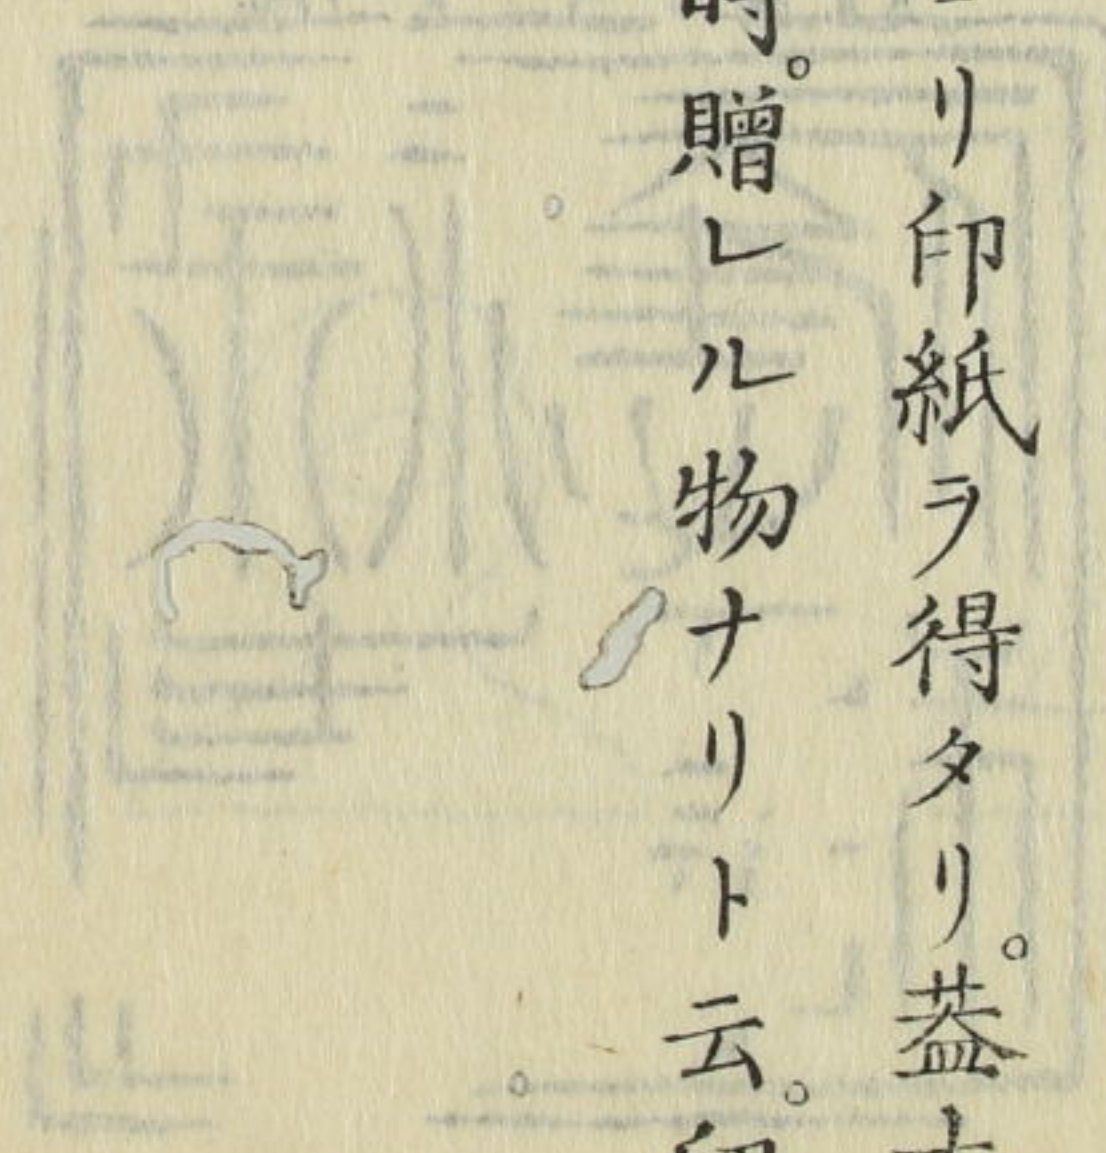 リ印紙ヲ得タリ。蓋
時。贈レル物ナリト云。